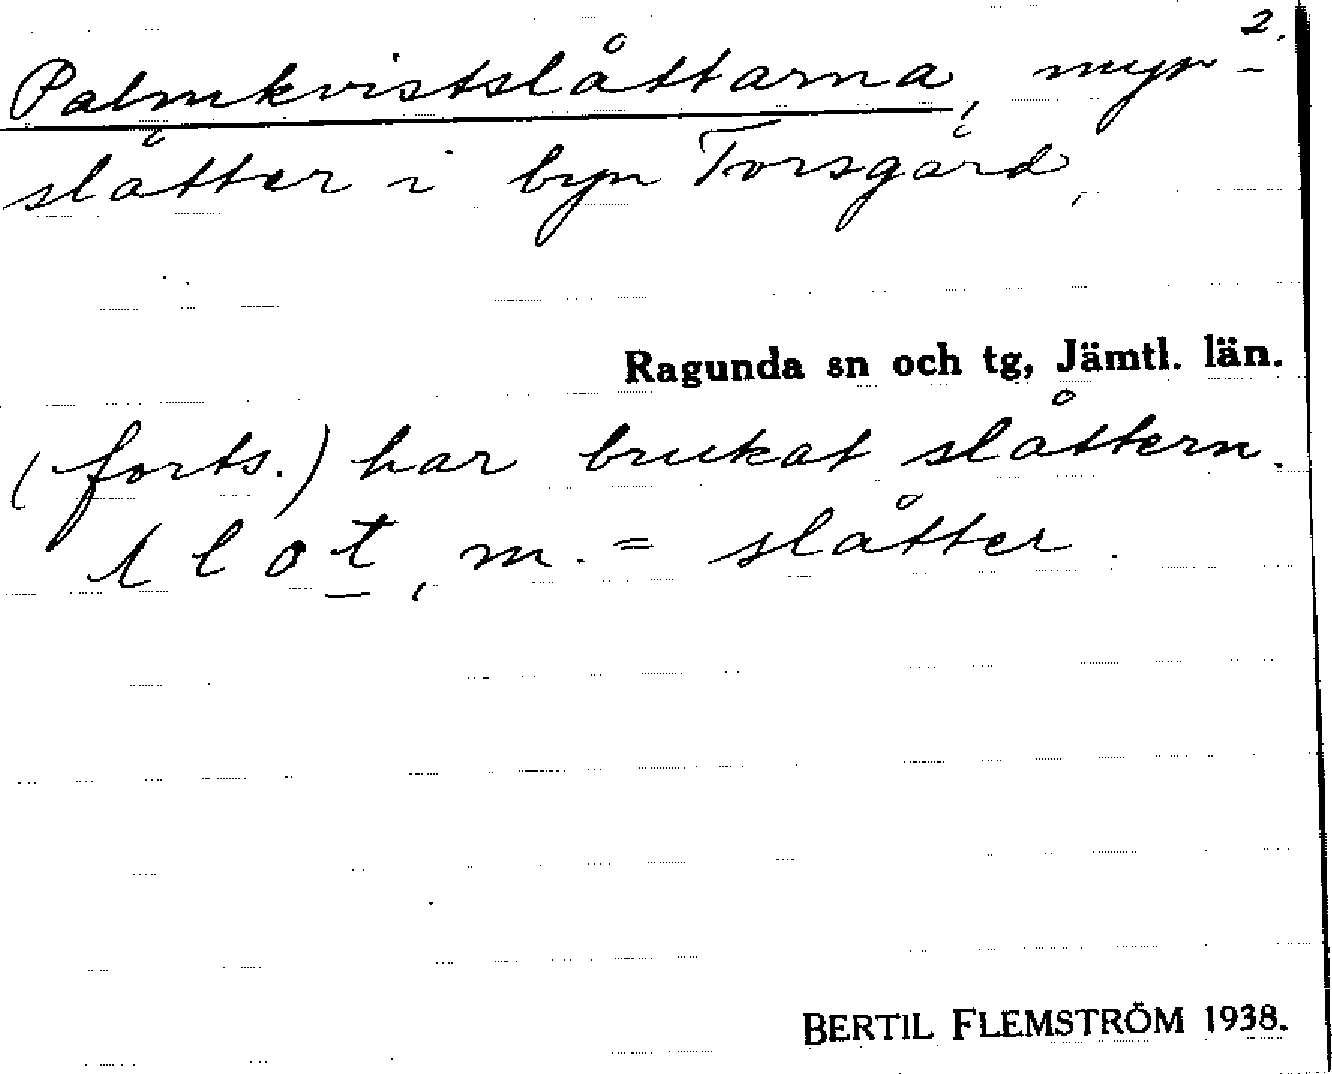 2.
Palmkvistslåttarna, myr-
slåtter i byn Torsgård,
Ragunda sn och tg, Jämtl. län.
(forts.) har brukat slåttern.
slot, m. = slåtter.
BERTIL FLEMSTRÖM 1938.